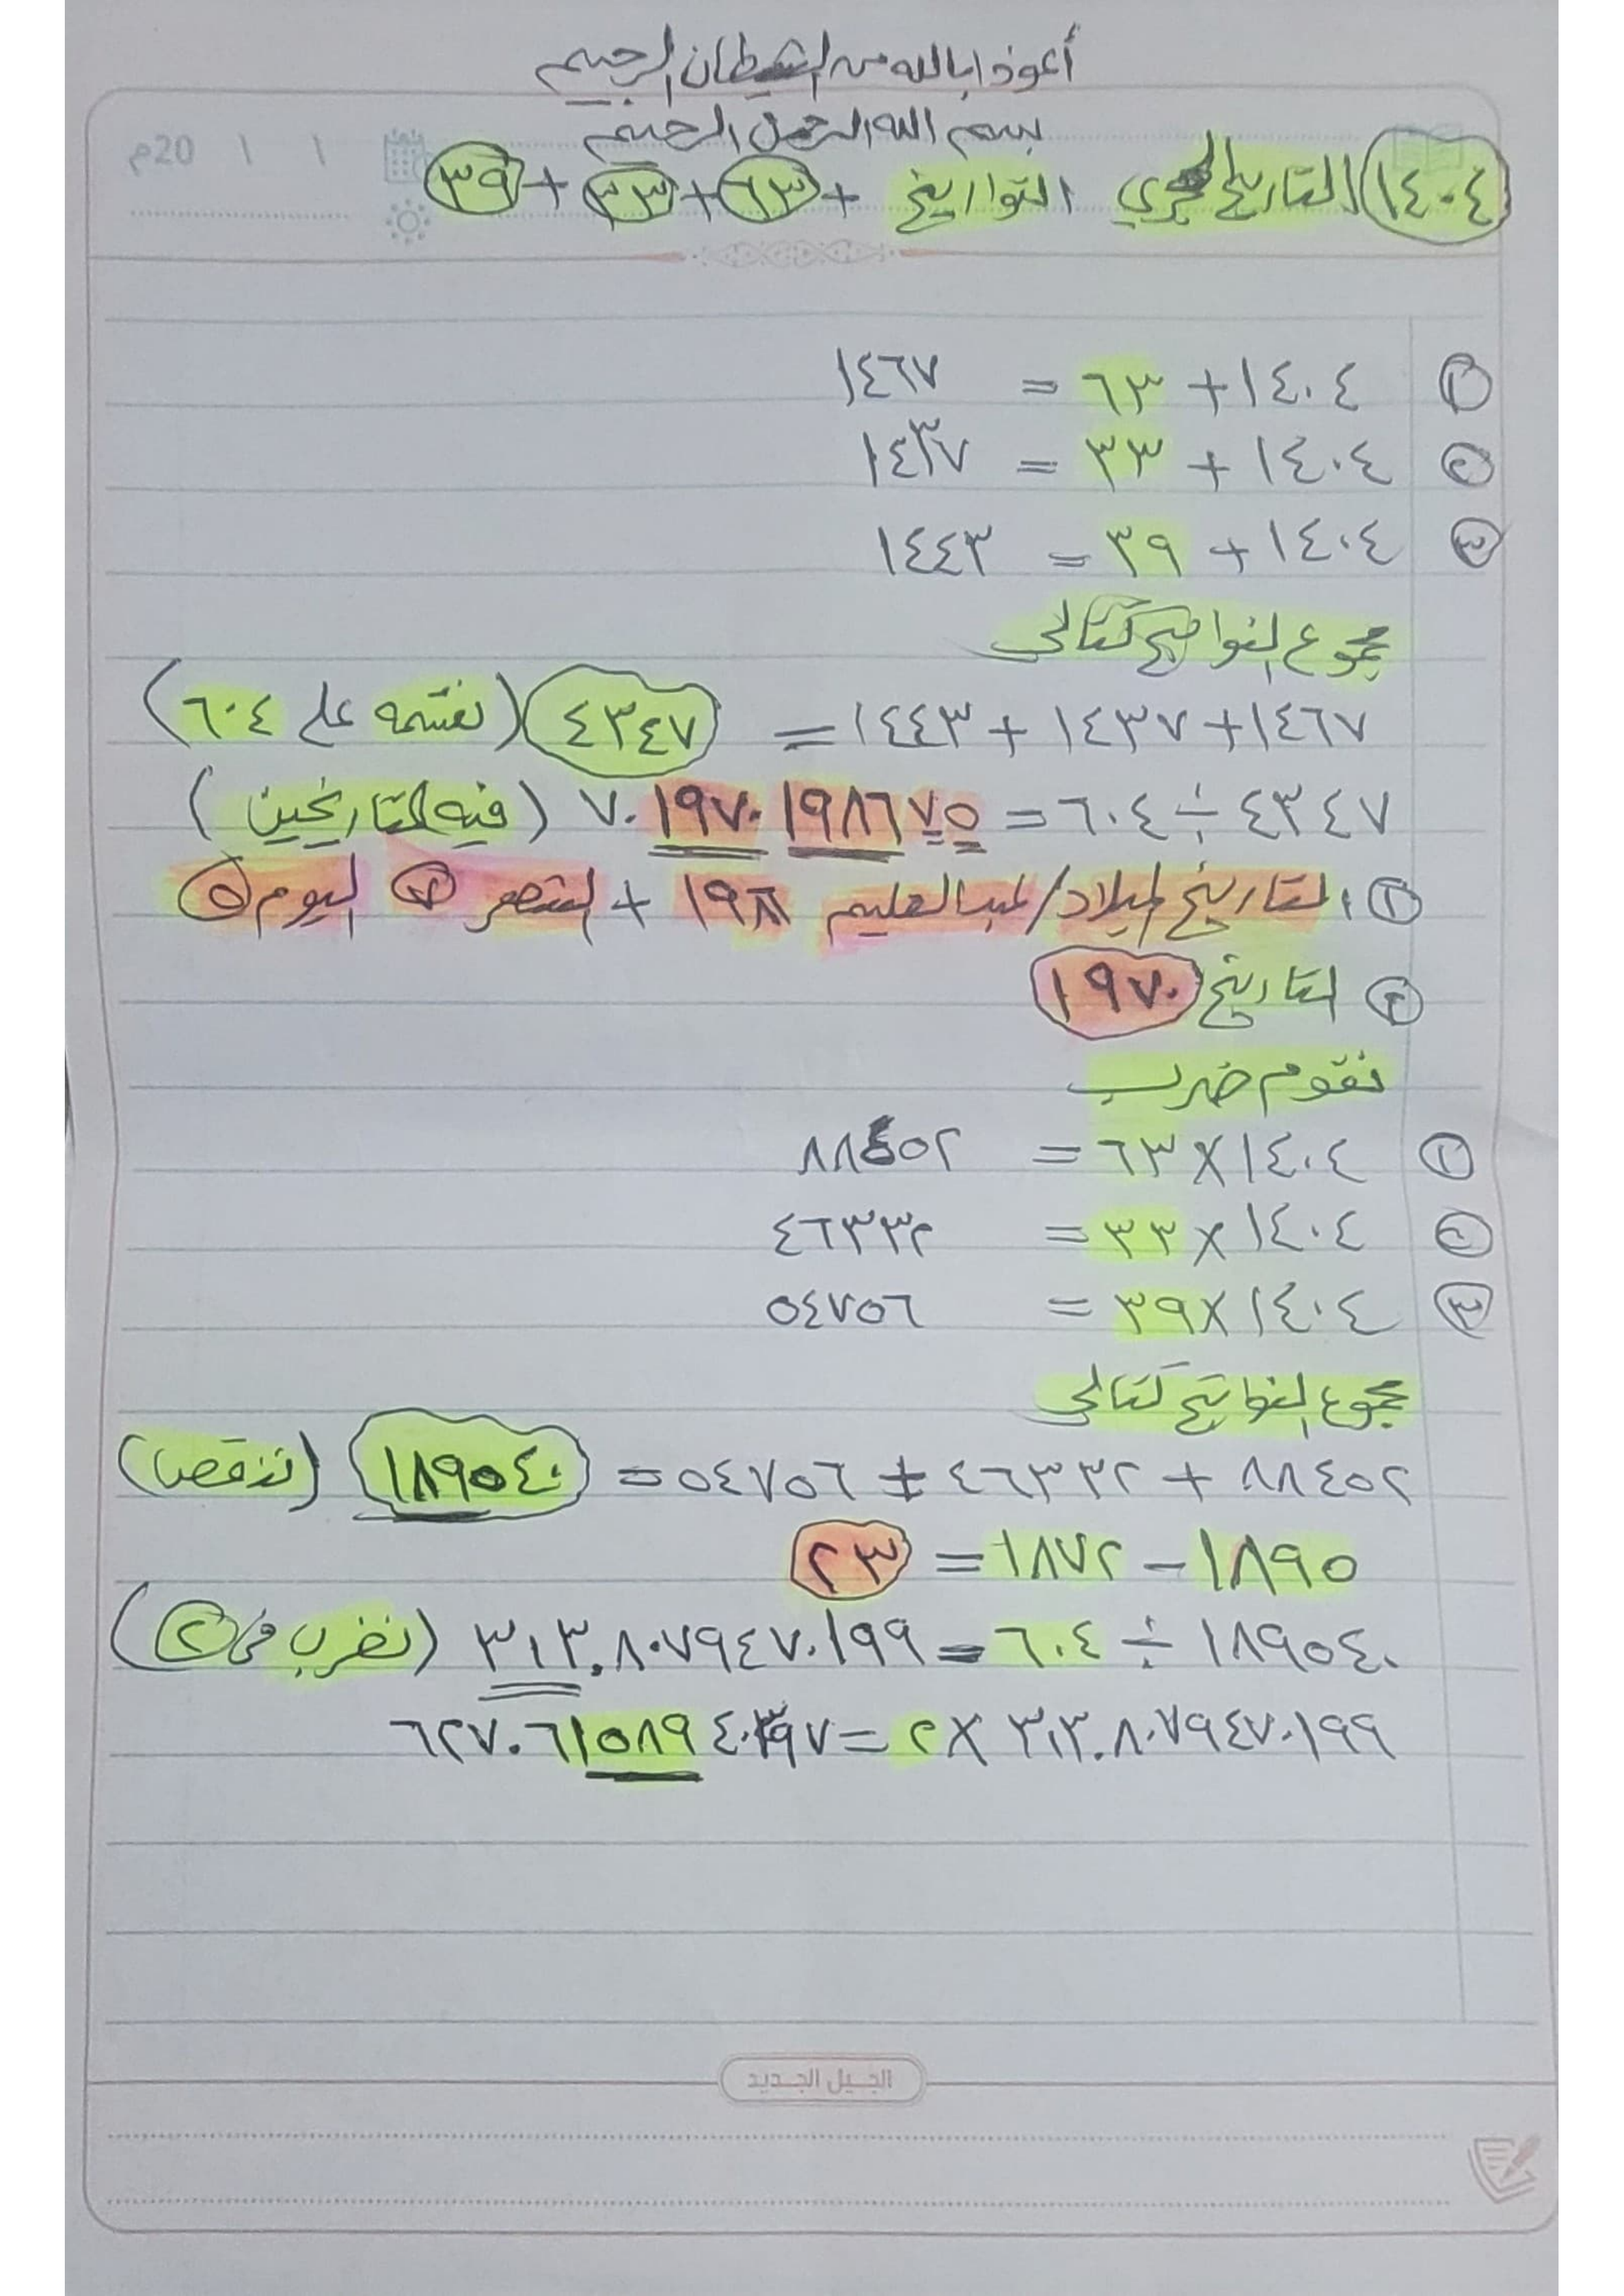 أعوذ بالله من الشيطان الرجيم
بسم الله الرحمن الرحيم
20م / /
١٤٠٤ التاريخ الهجري التواريخ + ٦٣ + ٣٣ + ٣٩
١ ١٤٠٤ + ٦٣ = ١٤٦٧
٢ ١٤٠٤ + ٣٣ = ١٤٣٧
٣ ١٤٠٤ + ٣٩ = ١٤٤٣
مجموع النواتج كتالى
١٤٦٧ + ١٤٣٧ + ١٤٤٣ = ٤٣٤٧ (نقسمه على ٦٠٤)
٤٣٤٧ ÷ ٦٠٤ = ٧.١٩٧٠١٩٨٦٧٥ (فيه التاريخين)
١ التاريخ الميلاد/عبدالعليم ١٩٨٦ + الشهر ٧ اليوم ٥
٢ التاريخ ١٩٧٠
نقوم ضرب
١ ١٤٠٤ × ٦٣ = ٨٨٤٥٢
٢ ١٤٠٤ × ٣٣ = ٤٦٣٣٢
٣ ١٤٠٤ × ٣٩ = ٥٤٧٥٦
مجموع النواتج كتالى
٨٨٤٥٢ + ٤٦٣٣٢ + ٥٤٧٥٦ = ١٨٩٥٤٠ (ننقص)
١٨٩٥ - ١٨٧٢ = ٢٣
١٨٩٥٤٠ ÷ ٦٠٤ = ٣١٣.٨٠٧٩٤٧٠١٩٩ (نضرب فى ٢)
٣١٣.٨٠٧٩٤٧٠١٩٩ × ٢ = ٦٢٧.٦١٥٨٩٤٠٣٩٧
الجيل الجديد